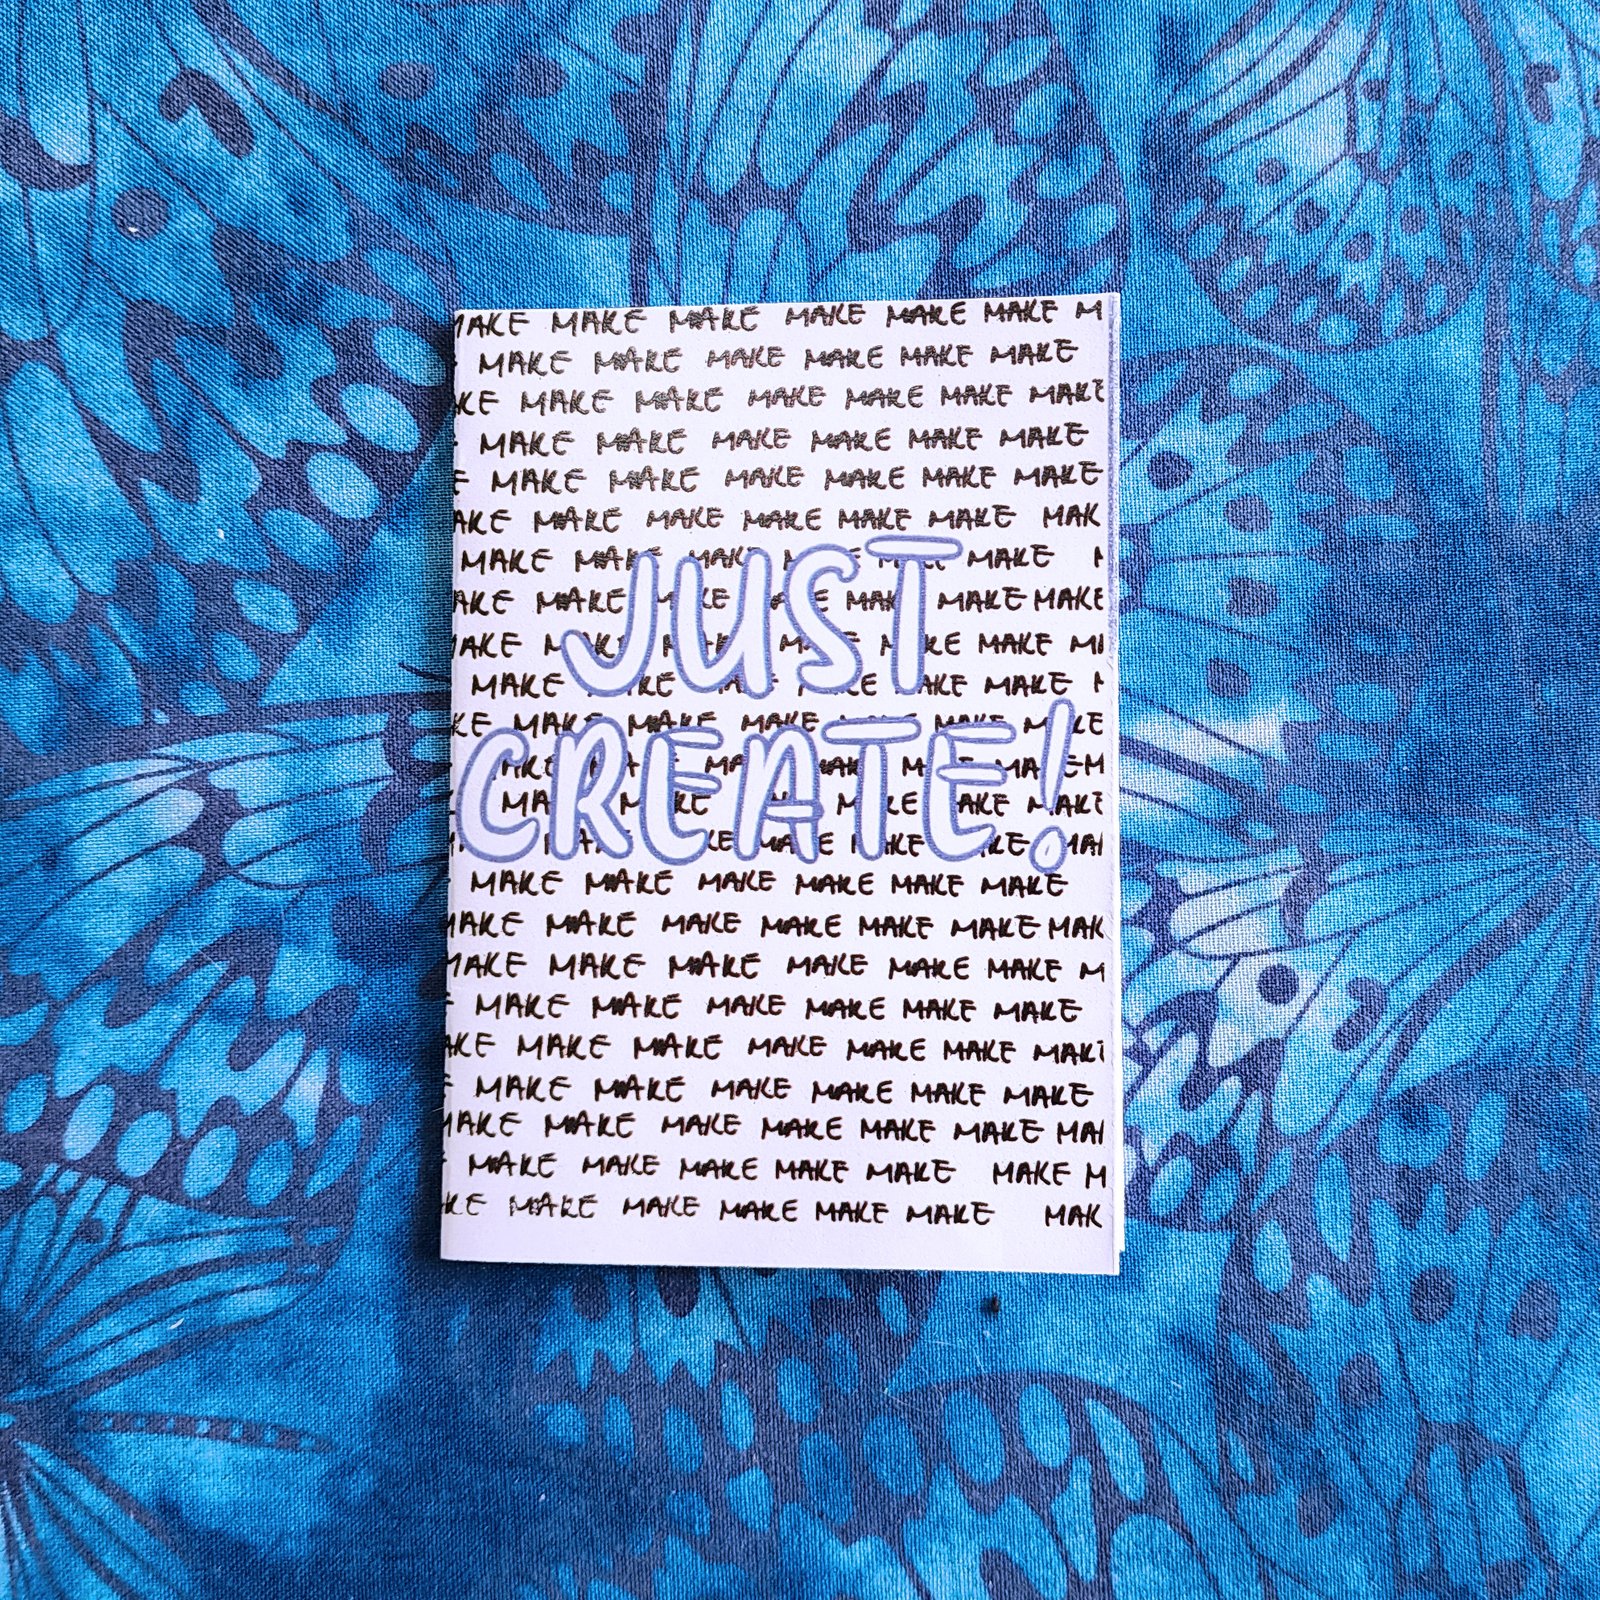 MAKE MAKE MAKE MAKE MAKE MAKE M
MAKE MAKE MAKE MAKE MAKE MAKE
KE MAKE MAKE MAKE MAKE MAKE MAKE
MAKE MAKE MAKE MAKE MAKE MAKE
E MAKE MAKE MAKE MAKE MAKE MAKE
AKE MAKE MAKE MAKE MAKE MAKE MAK
MAKE MAKE MAKE MAKE
AKE MAKE MAKE MAKE MAKE
JUST
MAKE MAKE M
MAKE MAKE
KE MAKE MAKE MAKE MAKE MAKE
CREATE!
MAKE MAKE MAKE MAKE MAKE MAKE
MAKE MAKE MAKE MAKE MAKE MAKE MAK
MAKE MAKE MAKE MAKE MAKE MAKE M
E MAKE MAKE MAKE MAKE MAKE MAKE
AKE MAKE MAKE MAKE MAKE MAKE MAKE
E MAKE MAKE MAKE MAKE MAKE MAKE
MAKE MAKE MAKE MAKE MAKE MAKE MA
MAKE MAKE MAKE MAKE MAKE MAKE M
KE MAKE MAKE MAKE MAKE MAKE MAK